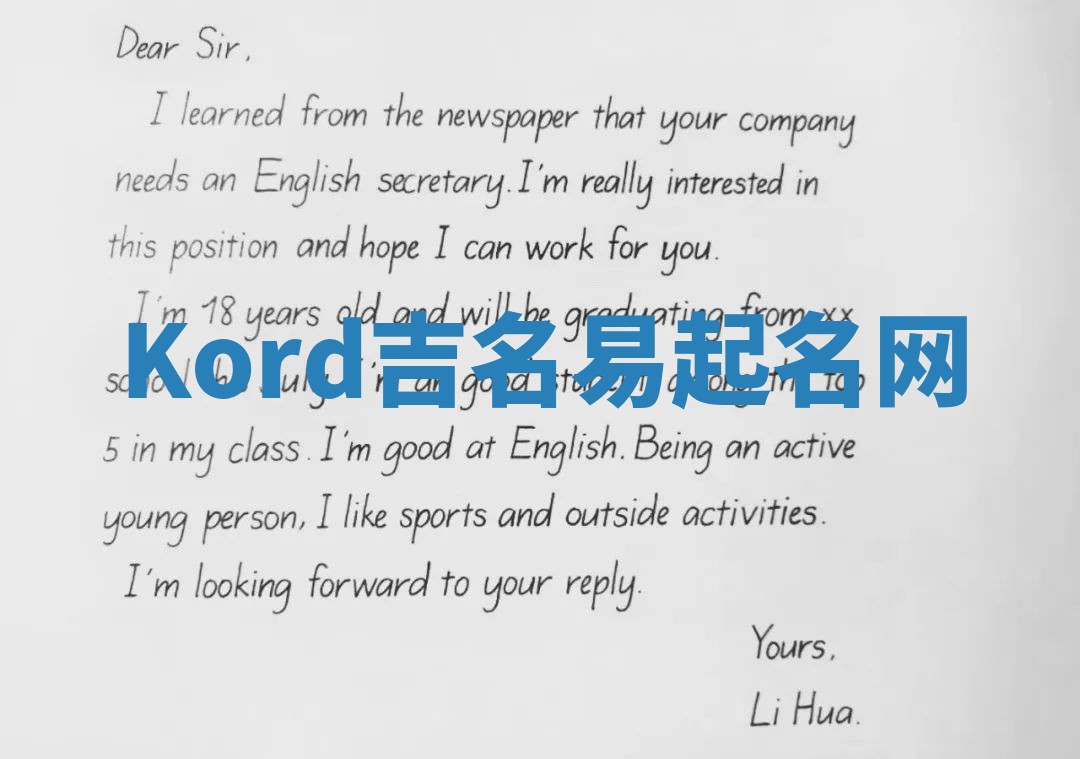 Dear Sir,
I learned from the newspaper that your company
needs an English secretary. I'm really interested in
this position and hope I can work for you.
I'm 18 years old and will be graduating from xx
Kord吉名易起名网
July I'm good student among the top
5 in my class. I'm good at English. Being an active
young person, I like sports and outside activities.
I'm looking forward to your reply.
Yours,
Li Hua.